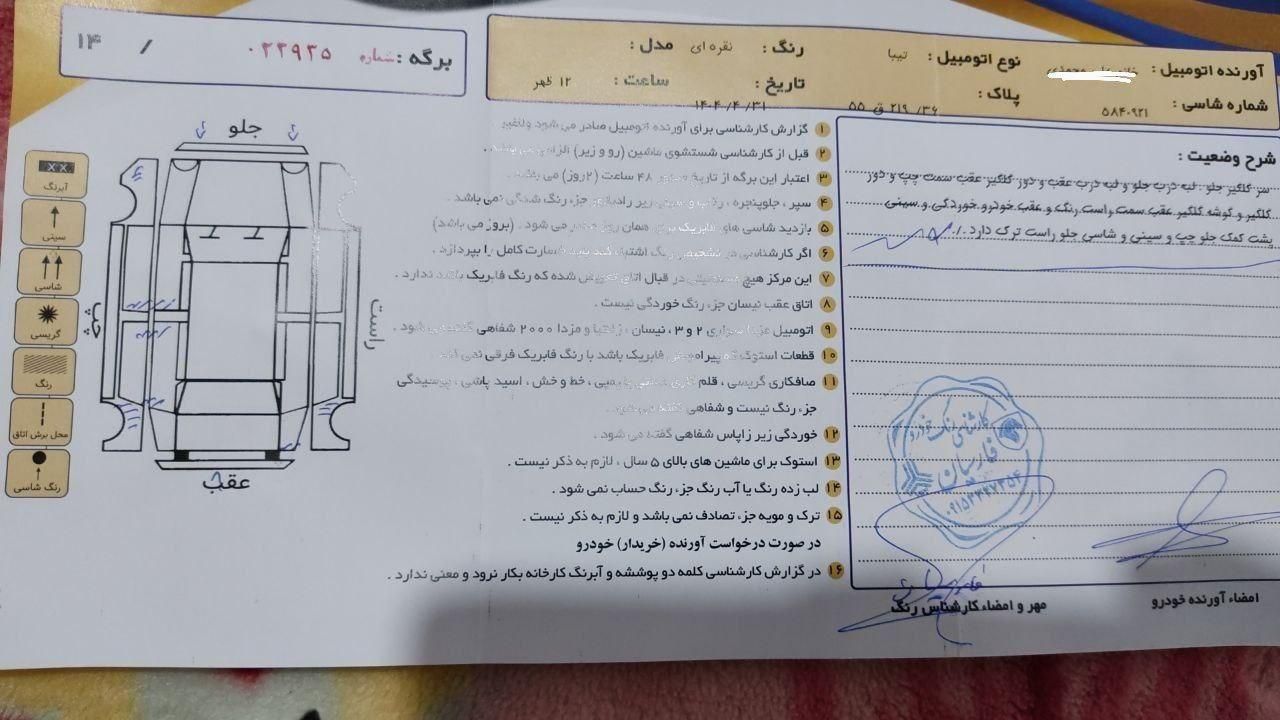 آورنده اتومبیل :
نوع اتومبیل : تیبا
رنگ : نقره ای
مدل :
شماره شاسی : ۵۸۴۰۹۲۱
پلاک : ۳۶/ ۲۱۹ ق ۵۵
تاریخ : ۱۴۰۴/۴/۳۱
ساعت : ۱۲ ظهر
برگه : شماره ۰۲۲۹۳۵ / ۱۴
شرح وضعیت :
سر گلگیر جلو . لبه درب جلو و لبه درب عقب و دور گلگیر عقب سمت چپ و دور
گلگیر و گوشه گلگیر عقب سمت راست رنگ و عقب خودرو خوردگی و سینی
پشت کمک جلو چپ و سینی و شاسی جلو راست ترک دارد ./
کارشناسی رنگ خودرو
فارسیان
امضاء آورنده خودرو
مهر و امضاء کارشناس رنگ
۱ گزارش کارشناسی برای آورنده اتومبیل صادر می شود ولاغیر .
۲ قبل از کارشناسی شستشوی ماشین (رو و زیر) الزامی می باشد .
۳ اعتبار این برگه از تاریخ صدور ۴۸ ساعت (۲روز) می باشد .
۴ سپر ، جلوپنجره ، رکاب و سینی زیر رادیاتور جزء رنگ شدگی نمی باشد .
۵ بازدید شاسی های فابریک برای همان روز صادر می شود . (بروز می باشد)
۶ اگر کارشناسی در تشخیص رنگ اشتباه کند باید خسارت کامل را بپردازد .
۷ این مرکز هیچ مسئولیتی در قبال اتاق تعویض شده که رنگ فابریک باشد ندارد .
۸ اتاق عقب نیسان جزء رنگ خوردگی نیست .
۹ اتومبیل مزدا سواری ۲ و ۳ ، نیسان ، زانتیا و مزدا ۲۰۰۰ شفاهی گفته می شود .
۱۰ قطعات استوک که پیرامونش فابریک باشد با رنگ فابریک فرقی نمی کند .
۱۱ صافکاری گریسی ، قلم کاری ، خط و خش ، اسید پاشی ، پوسیدگی
جزء رنگ نیست و شفاهی گفته می شود .
۱۲ خوردگی زیر زاپاس شفاهی گفته می شود .
۱۳ استوک برای ماشین های بالای ۵ سال ، لازم به ذکر نیست .
۱۴ لب زده رنگ یا آب رنگ جزء رنگ حساب نمی شود .
۱۵ ترک و مویه جزء تصادف نمی باشد و لازم به ذکر نیست .
در صورت درخواست آورنده (خریدار) خودرو
۱۶ در گزارش کارشناسی کلمه دو پوششه و آبرنگ کارخانه بکار نرود و معنی ندارد .
جلو
راست
چپ
عقب
آبرنگ
سینی
شاسی
گریسی
رنگ
محل برش اتاق
رنگ شاسی